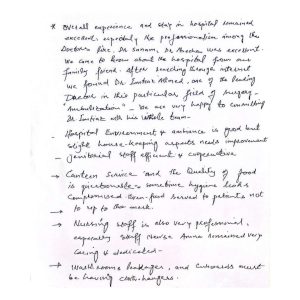 * Overall experience and stay in hospital remained
excellent. especially the professionalism among the
Doctors like, Dr Sanam, Dr Anecha was excellent.
We came to know about the hospital from our
family friend. After searching through internet
we found Dr Imtiaz Ahmed, one of the leading
Doctor in this particular field of surgery-
We are very happy to consulting
Dr Imtiaz with his whole team-
- Hospital Environment & ambiance is good but
slight house-keeping aspects needs improvement
Janitorial staff efficient & cooperative
→ Canteen Service and the Quality of food
is questionable sometime, hygiene levels
Compromised Even food served to patients not
to up to the mark.
→ Nursing staff is also very professional,
especially Staff Nurse Amna remained very
Caring & dedicated-
→ Washrooms leakages, and Cupboards must
be having cloth-hangers.